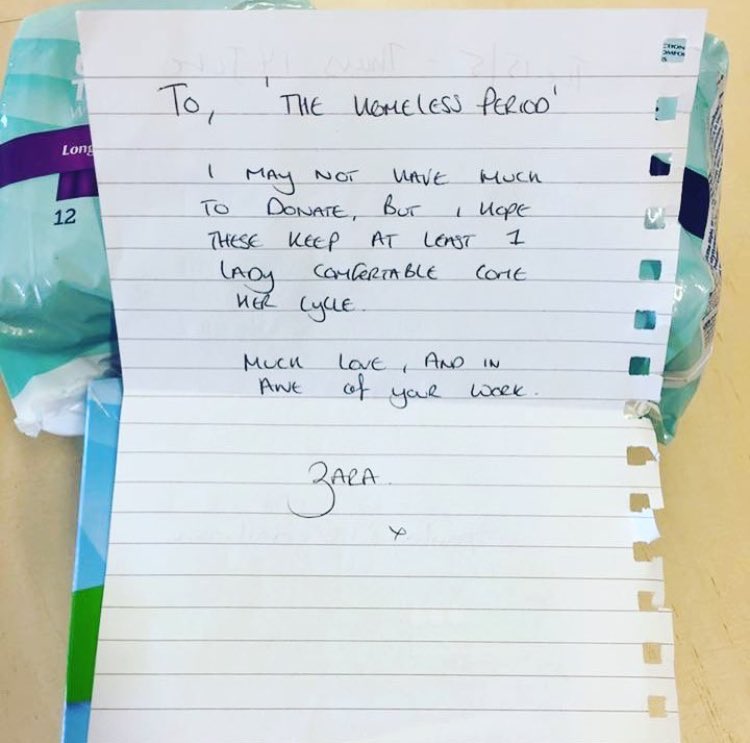 To, 'THE HOMELESS PERIOD'
I MAY NOT HAVE MUCH
TO DONATE, BUT I HOPE
THESE KEEP AT LEAST 1
LADY COMFERTABLE COME
HER CYCLE.
MUCH LOVE, AND IN
AWE of your WORK.
ZARA.
x
Long
12